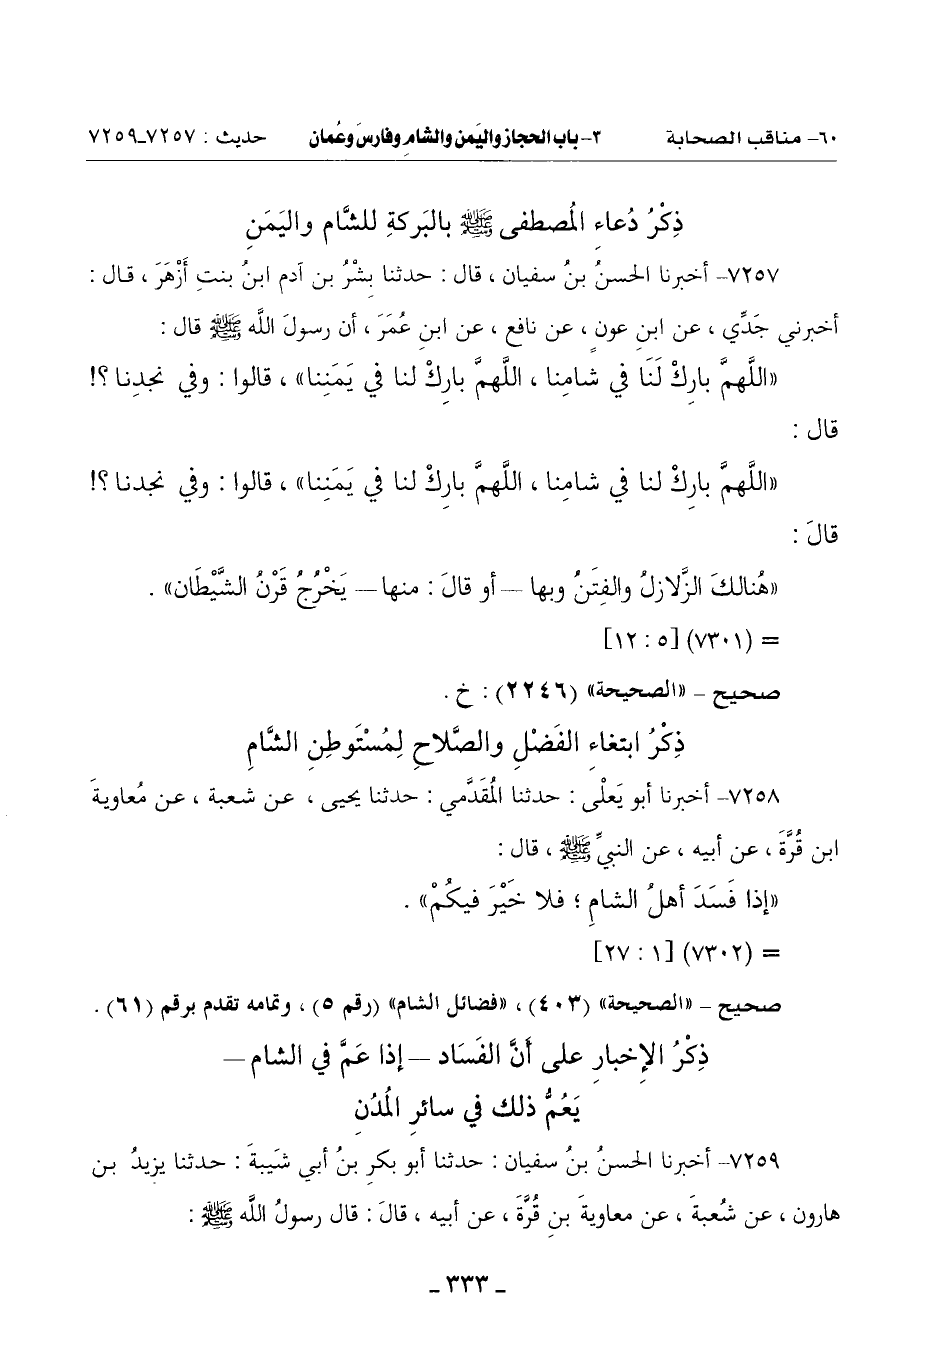 ٦٠- مناقب الصحابة ٢- باب الحجاز واليَمن والشام وفارسَ وعُمان حديث : ٧٢٥٧-٧٢٥٩
ذِكْرُ دُعاءِ المُصطفى ﷺ بالبَركةِ للشَّام واليَمَنِ
٧٢٥٧- أخبرنا الحسنُ بنُ سفيان ، قال : حدثنا بِشْرُ بن آدم ابنُ بنتِ أَزْهَرَ ، قال :
أخبرني جَدِّي ، عن ابنِ عونٍ ، عن نافع ، عن ابنِ عُمَرَ ، أن رسولَ اللَّه ﷺ قال :
«اللَّهمَّ بارِكْ لَنَا في شامِنا ، اللَّهمَّ بارِكْ لنا في يَمَنِنا» ، قالوا : وفي نجدِنا ؟!
قال :
«اللَّهمَّ بارِكْ لنا في شامِنا ، اللَّهمَّ بارِكْ لنا في يَمَنِنا» ، قالوا : وفي نجدنا ؟!
قالَ :
«هُنالكَ الزَّلازلُ والفِتَنُ وبها —أو قالَ : منها— يَخْرُجُ قَرْنُ الشَّيْطَان» .
= (٧٣٠١) [٥ : ١٢]
صحيح - «الصحيحة» (٢٢٤٦) : خ .
ذِكْرُ ابتغاءِ الفَضْلِ والصَّلاحِ لِمُسْتَوطِنِ الشَّامِ
٧٢٥٨- أخبرنا أبو يَعْلَى : حدثنا المُقَدَّمي : حدثنا يحيى ، عن شعبة ، عن مُعاويةَ
ابن قُرَّةَ ، عن أبيه ، عن النبيِّ ﷺ ، قال :
«إذا فَسَدَ أهلُ الشامِ ؛ فلا خَيْرَ فيكُمْ» .
= (٧٣٠٢) [١ : ٢٧]
صحيح - «الصحيحة» (٤٠٣) ، «فضائل الشام» (رقم ٥) ، وتمامه تقدم برقم (٦١) .
ذِكْرُ الإخبارِ على أَنَّ الفَسَاد —إذا عَمَّ في الشام—
يَعُمُّ ذلك في سائرِ المُدُنِ
٧٢٥٩- أخبرنا الحسنُ بنُ سفيان : حدثنا أبو بكرِ بنُ أبي شَيبةَ : حدثنا يزيدُ بن
هارون ، عن شُعبةَ ، عن معاويةَ بنِ قُرَّةَ ، عن أبيه ، قالَ : قال رسولُ اللَّه ﷺ :
- ٣٣٣ -